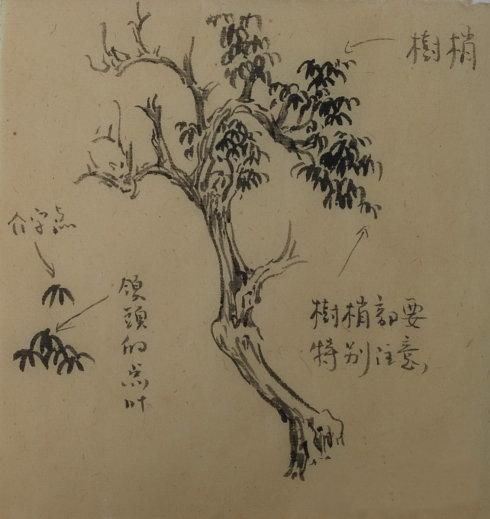 樹梢
介字点
领頭的点叶
樹梢部要
特别注意